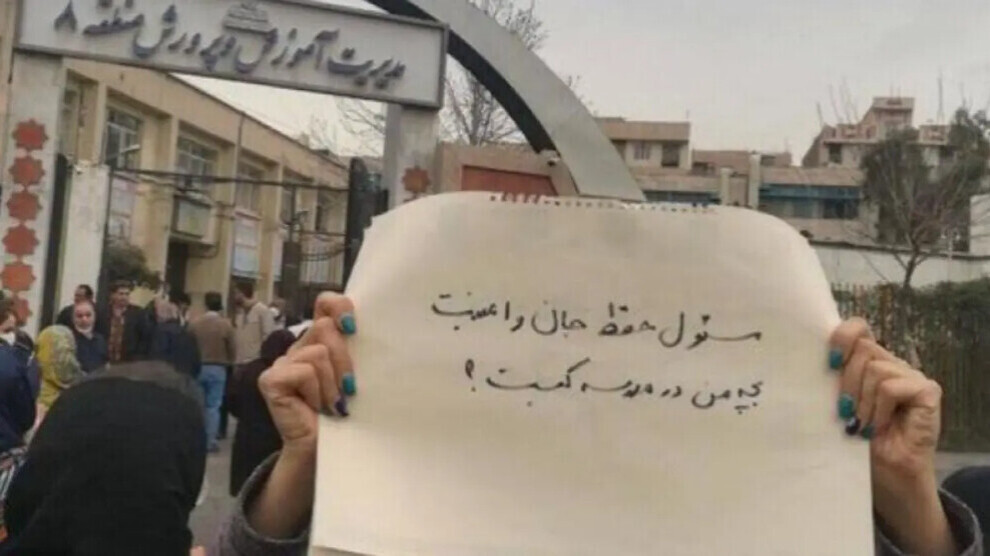 مدیریت آموزش و پرورش منطقه ۸
مسئول حفظ جان و امنیت
بچه من در مدرسه کیست؟